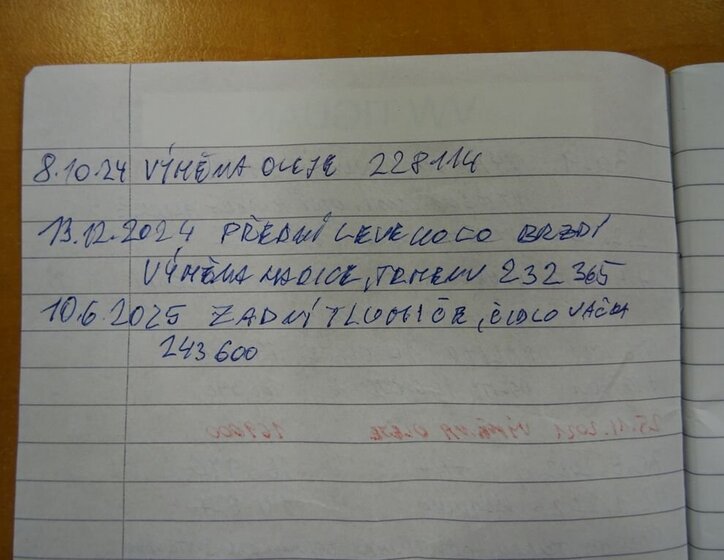 8.10.24 VÝMĚNA OLEJE 228114
13.12.2024 PŘEDNÍ LEVE KOLO BRZDÍ
VÝMĚNA HADICE, TRMENU 232 365
10.6.2025 ZADNÍ TLUMIČE, ČIDLO VAČKA
243 600
25.11.2021 VÝMĚNA OLEJE 169000